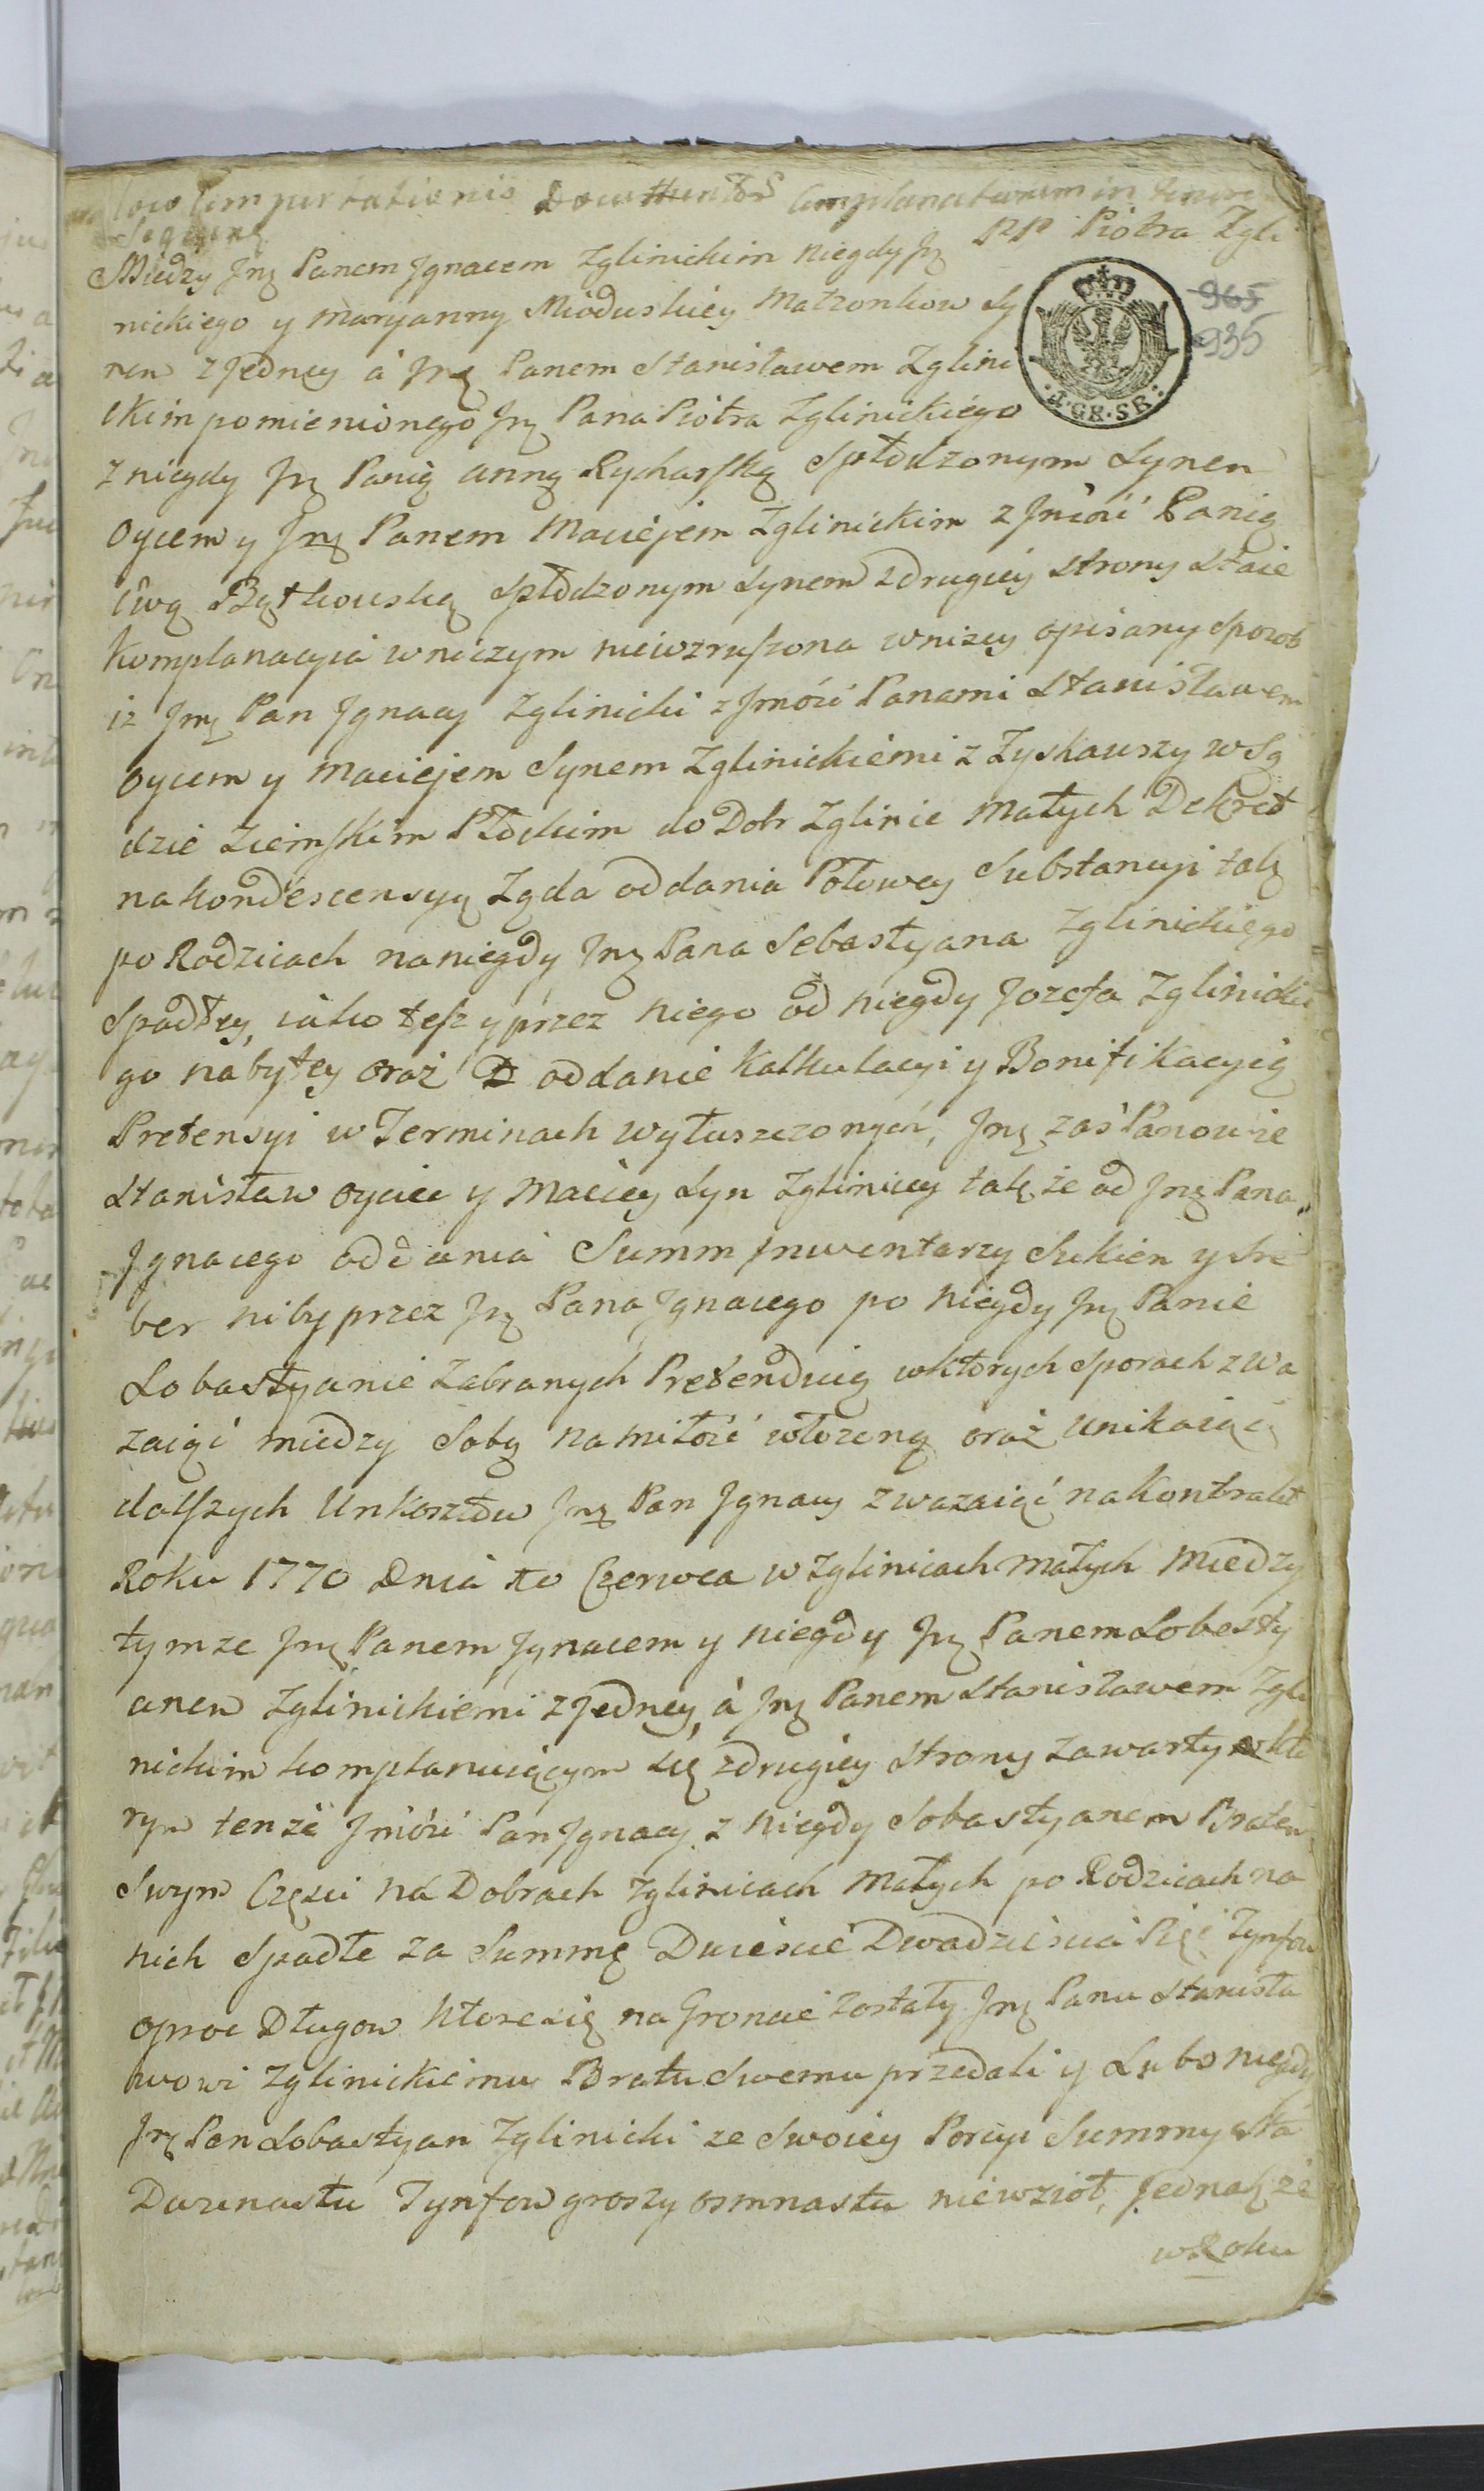 Loco Comportationis Documentor Complanatarum in tenore
Sequenti
Między Jmę Panem Jgnacem Zglinickim niegdy Jmę PP Piotra Zgli
nickiego y Maryanny Mioduskiey Małzonkow Sy
nem z jedney á Jmę Panem Stanisławem Zglini
ckim pomienionego Jmę Pana Piotra Zglinickiego
z niegdy Jmę Panią Anną Rycharską Spłodzonym Synem
Oycem y Jmę Panem Maciejem Zglinickim z Jmość Panią
Ewą Bątkowską Spłodzonym Synem z drugiey strony staie
Komplanacyia w niczym niewzruszona w niżey opisany sposob
iz Jmę Pan Jgnacy Zglinicki z Jmość Panami Stanisławem
Oycem y Maciejem Synem Zglinickiemi z Zyskawszy w Są
dzie Ziemskim Płockim do Dobr Zglinic Małych Dekret
na kondescensyą Ząda oddania Połowey Substancyi tak
po Rodzicach na niegdy Jmę Pana Sebastyana Zglinickiego
Spadłey, iako tesz y przez niego od niegdy Jozefa Zglinickie
go nabytey oraz oddanie Kalkulacyi y Bonifikacyią
Pretensyi w Terminach wyłuszczonych, Jmę zaś Panowie
Stanisław Oyciec y Maciey Syn Zgliniccy takze od Jmę Pana
Jgnacego oddania Summ Jnwentarzy Sukien y Sre
ber niby przez Jmę Pana Jgnacego po niegdy Jmę Panie
Sobastyanie Zabranych Pretenduią w ktorych Sporach zwa
zaiąć między Sobą na miłość włożoną oraz unikaiąc
dalszych Unkosztow Jmę Pan Jgnacy zwazaiąć na Kontrakt
Roku 1770 Dnia 10 Czerwca w Zglinicach Małych Między
tymze Jmę Panem Jgnacem y niegdy Jmę Panem Sobesty
anem Zglinickiemi z jedney, á Jmę Panem Stanisławem Zgli
nickim komplanuiącym się z drugiey strony zawarty w kto
rym tenże Jmość Pan Jgnacy z niegdy Sobastyanem Bratem
Swym Części ná Dobrach Zglinicach Małych po Rodzicach na
nich Spadłe za Summę Dwieście Dwadzieścia Pięć Tynfow
oproc Długow ktore się na Groncie zostały Jmę Panu Stanisła
wowi Zglinickiemu Bratu Swemu przedali y Lubo niegdy
Jmę Pan Sobastyan Zglinicki ze Swoiey Porcyi Summy Sta
Dwunastu Tynfow groszy osmnastu niewzioł, jednak że
w Roku
965
935
GR. SR.